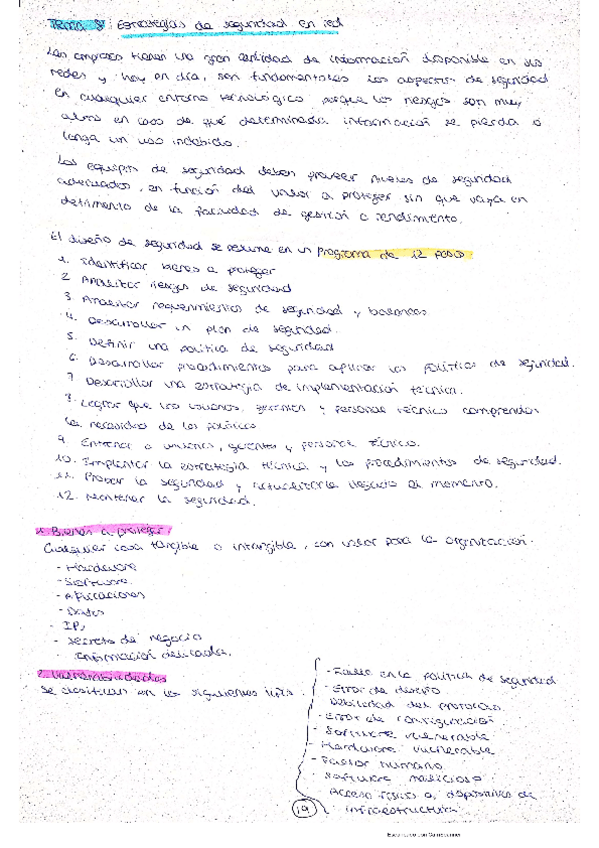 Tema 8: Estrategias de seguridad en red
Las empresas tienen una gran cantidad de información disponible en sus
redes y hoy en día, son fundamentales los aspectos de seguridad
en cualquier entorno tecnológico porque los riesgos son muy
altos en caso de que determinada información se pierda o
tenga un uso indebido.
Los equipos de seguridad deben proveer niveles de seguridad
adecuados, en función del valor a proteger sin que vaya en
detrimento de la facilidad de gestión o rendimiento.
El diseño de seguridad se resume en un programa de 12 pasos:
1. Identificar bienes a proteger
2. Analizar riesgos de seguridad
3. Analizar requerimientos de seguridad y balances
4. Desarrollar un plan de seguridad.
5. Definir una política de seguridad
6. Desarrollar procedimientos para aplicar las políticas de seguridad.
7. Desarrollar una estrategia de implementación técnica.
8. Lograr que los usuarios, gerentes y personal técnico comprendan
la necesidad de las políticas
9. Entrenar a usuarios, gerentes y personal técnico.
10. Implantar la estrategia técnica y los procedimientos de seguridad.
11. Probar la seguridad y actualizarla llegado el momento.
12. Mantener la seguridad.
1. Bienes a proteger:
Cualquier cosa tangible o intangible, con valor para la organización.
- Hardware
- Software.
- Aplicaciones
- Datos
- IPs
- Secreto de negocio
- Información delicada.
2. Vulnerabilidades
Se clasifican en los siguientes tipos
- Fallo en la política de seguridad
- Error de diseño.
- Debilidad del protocolo.
- Error de configuración.
- Software vulnerable
- Hardware vulnerable
- Factor humano
- Software malicioso
- Acceso físico a dispositivos de
infraestructura
19
Escaneado con CamScanner